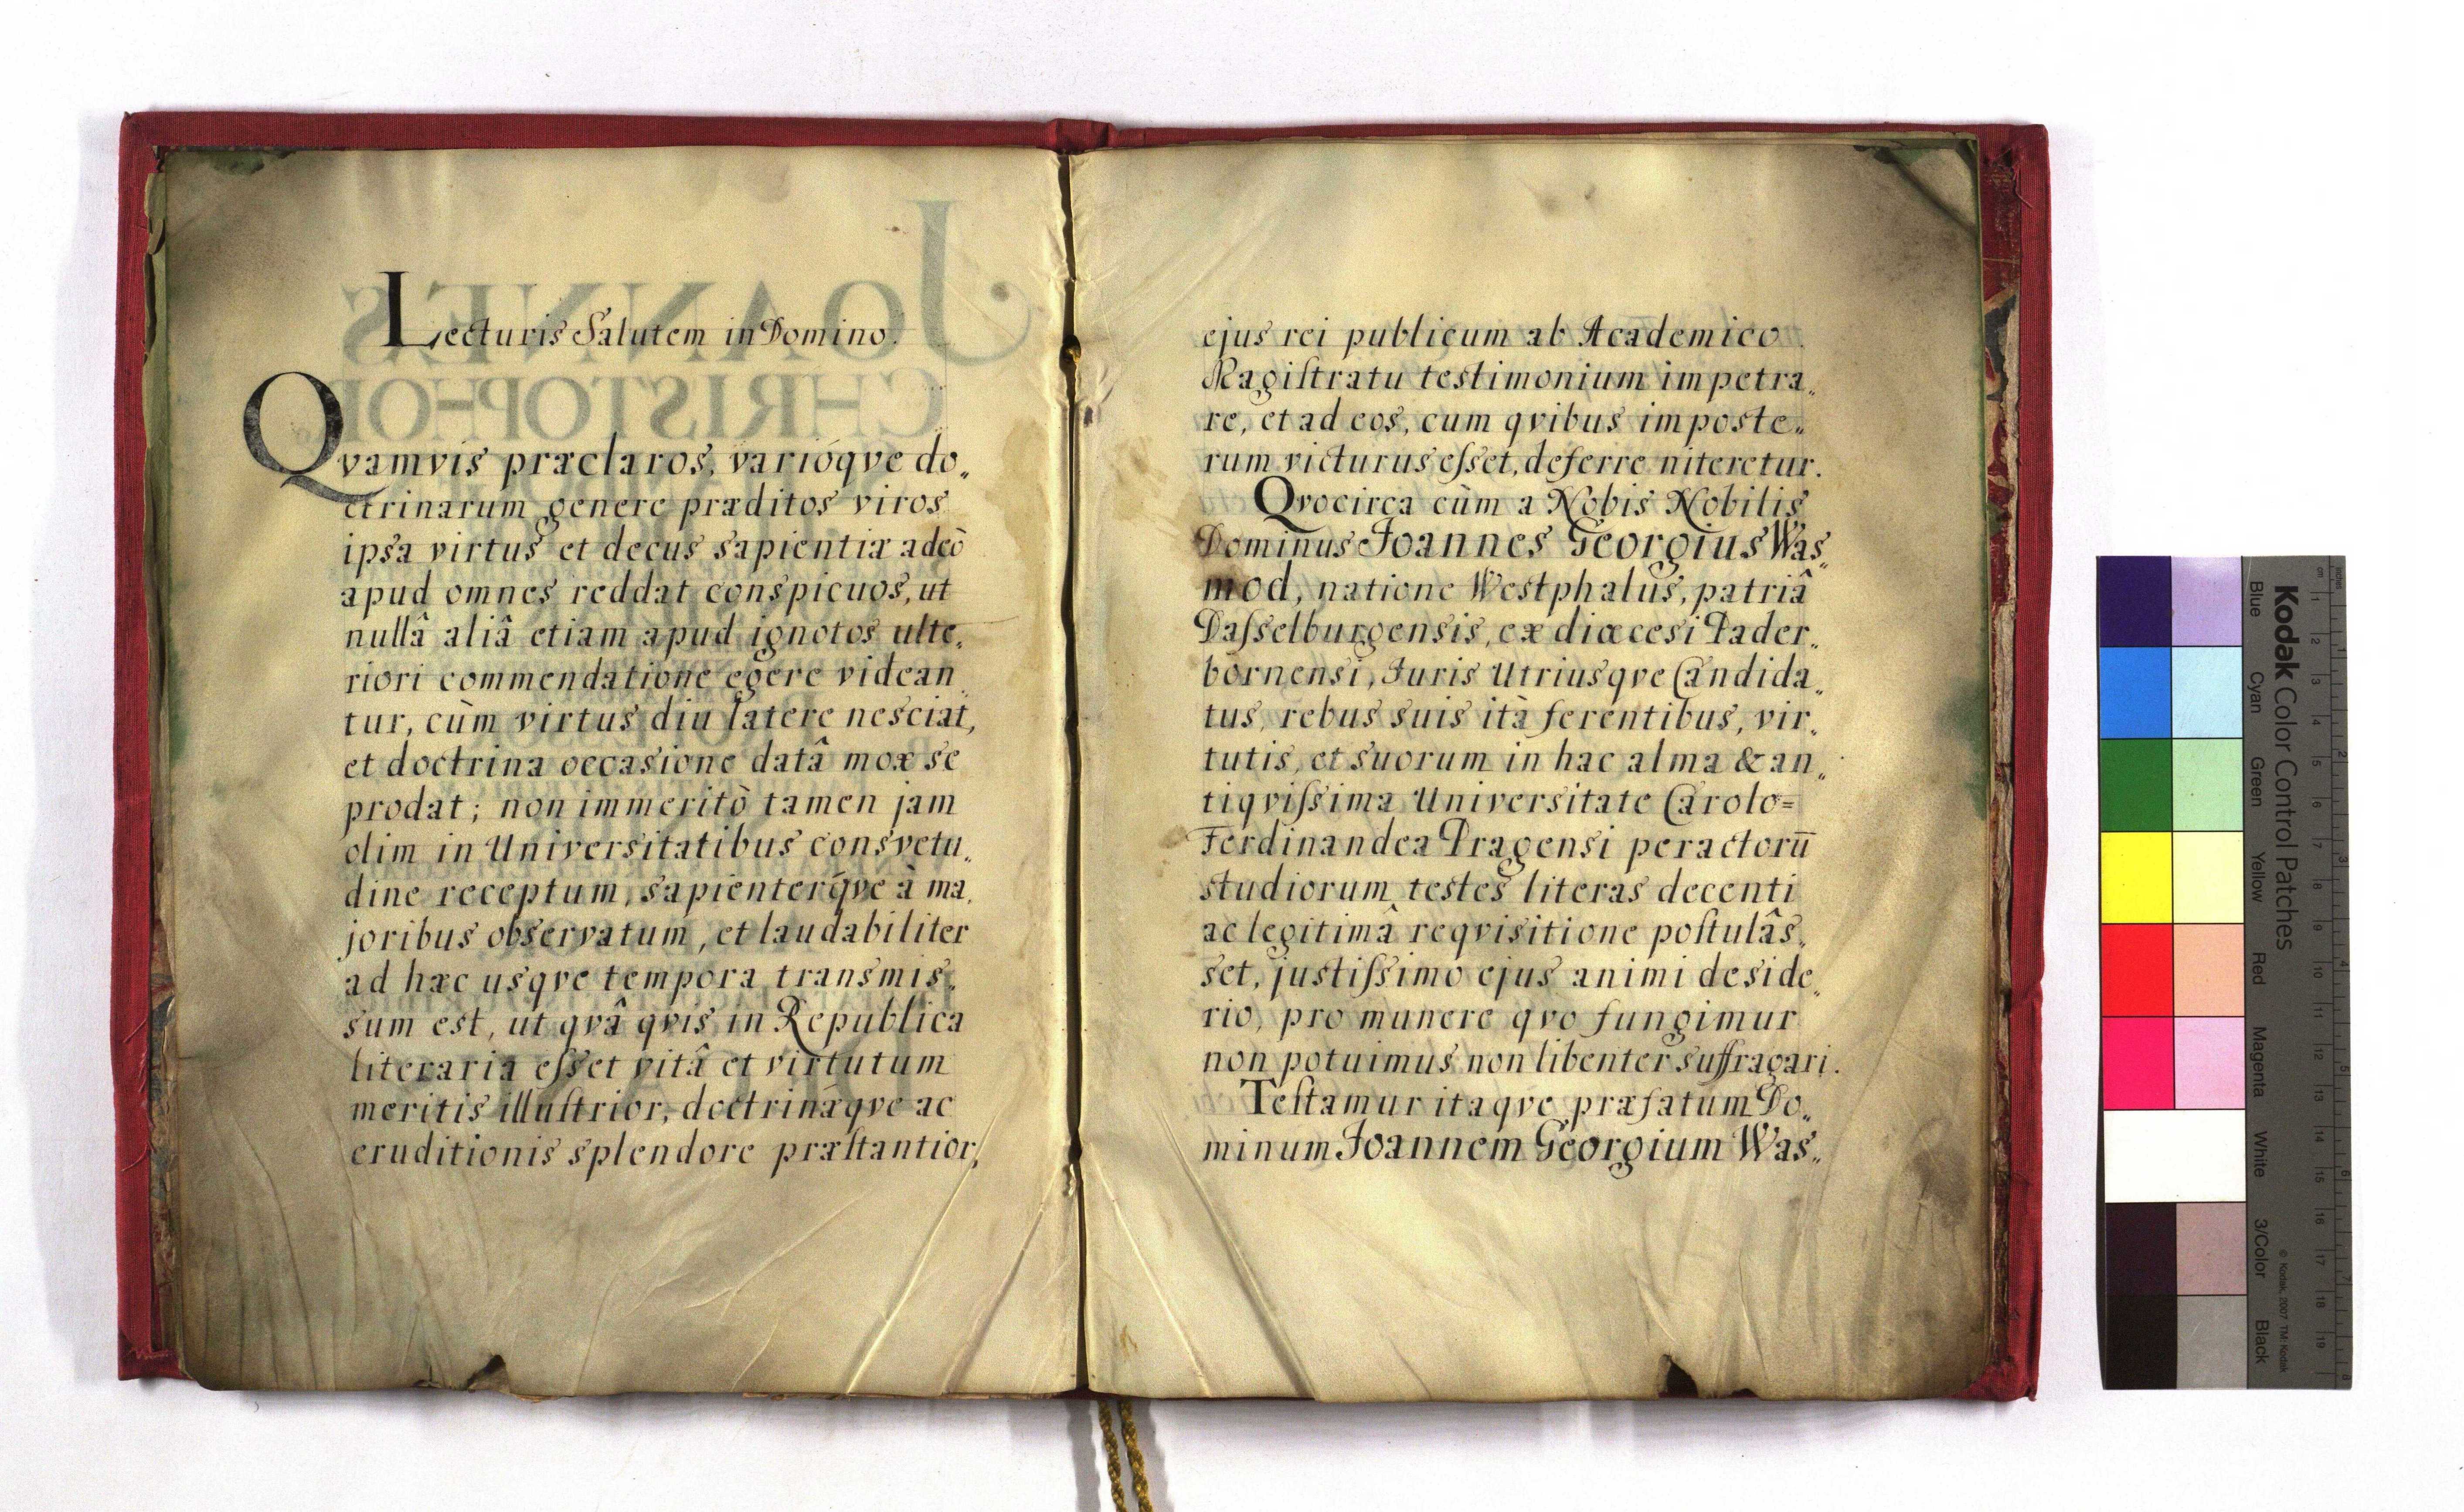 Lecturis Salutem in Domino.
Qvamvis præclaros, varióqve do„
ctrinarum genere præditos viros
ipsa virtus et decus sapientiæ adeò
apud omnes reddat conspicuos, ut
nullâ aliâ etiam apud ignotos ulte„
riori commendatione egere videan„
tur, cùm virtus diu latere nesciat,
et doctrina occasione datâ mox se
prodat; non immeritò tamen jam
olim in Universitatibus consvetu„
dine receptum, sapienterq́ve à ma„
joribus observatum, et laudabiliter
ad hæc usqve tempora transmis„
sum est, ut qvâ qvis in Republica
literaria eſset vitâ et virtutum
meritis illuſtrior, doctrináqve ac
eruditionis splendore præſtantior,
ejus rei publicum ab Academico
Magiſtratu testimonium impetra„
re, et ad eos, cum qvibus imposte„
rum victurus eſset, deferre niteretur.
Qvocirca cùm a Nobis Nobilis
Dominus Joannes Georgius Was„
mod, natione Westphalus, patriâ
Daſselburgensis, ex diœcesi Pader„
bornensi, Juris Utriusqve Candida„
tus, rebus suis ità ferentibus, vir„
tutis, et suorum in hac alma & an„
tiqviſsima Universitate Carolo=
Ferdinandea Pragensi peractorū
studiorum testes literas decenti
ac legitimâ reqvisitione poſtulâs„
set, justiſsimo ejus animi deside„
rio, pro munere qvo fungimur
non potuimus non libenter suffragari.
Teſtamur itaqve præfatum Do„
minum Joannem Georgium Was„
JOANNES
CHRISTOPHOR
Kodak Color Control Patches
Blue Cyan Green Yellow Red Magenta White 3/Color Black
© Kodak, 2007 TM: Kodak
cm 1 2 3 4 5 6 7 8 9 10 11 12 13 14 15 16 17 18 19
inches 1 2 3 4 5 6 7 8